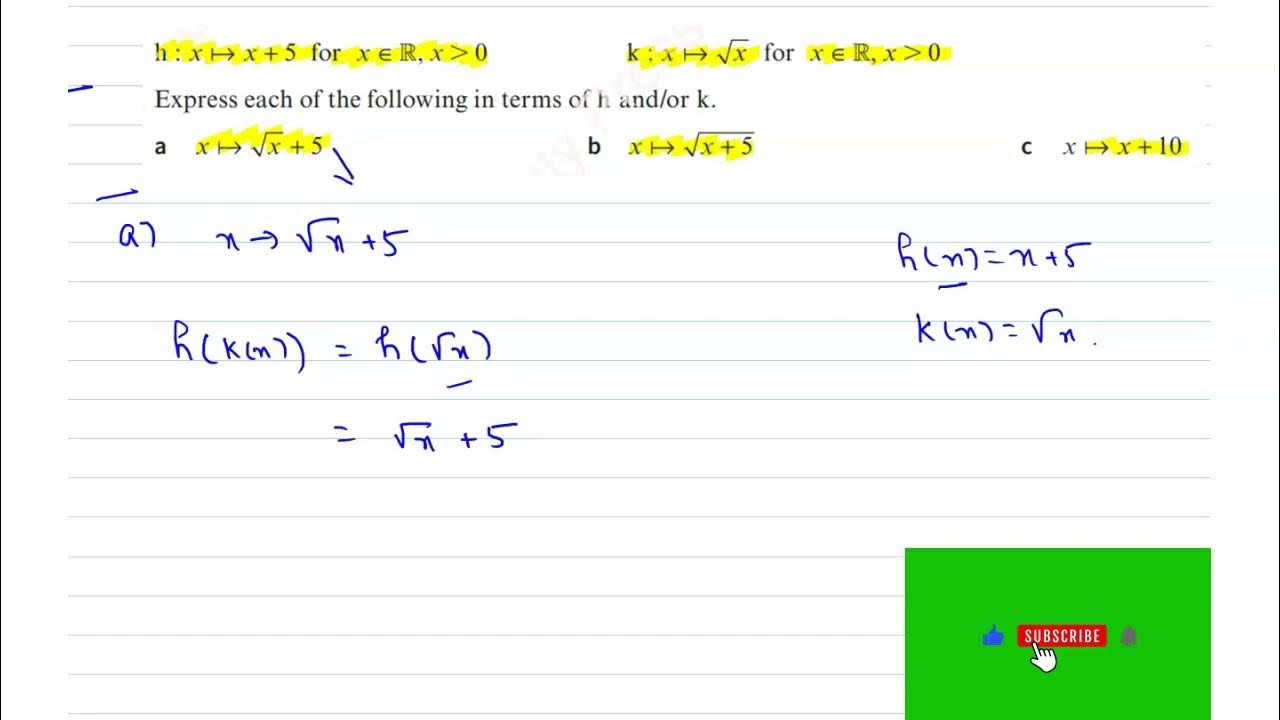 h : x ↦ x + 5 for x ∈ ℝ, x > 0 k : x ↦ √x for x ∈ ℝ, x > 0
Express each of the following in terms of h and/or k.
a x ↦ √x + 5 b x ↦ √(x + 5) c x ↦ x + 10
a) x → √x + 5
h(x) = x + 5
k(x) = √x .
h(k(x)) = h(√x)
= √x + 5
SUBSCRIBE